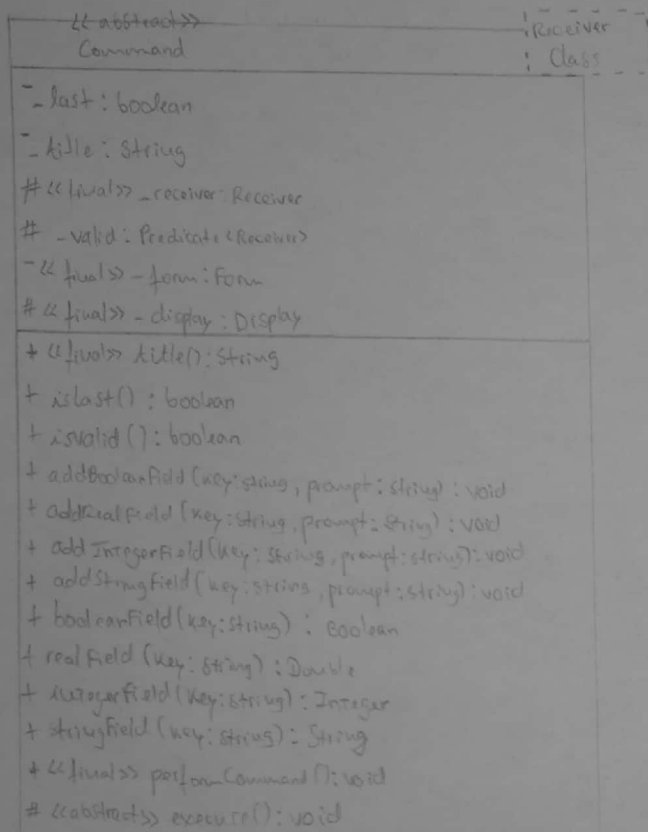 <<abstract>>
Command
Receiver
: Class
- _last : boolean
- _title : String
# <<final>> _receiver : Receiver
# _valid : Predicate<Receiver>
- <<final>> _form : Form
# <<final>> _display : Display
+ <<final>> title() : String
+ isLast() : boolean
+ isValid() : boolean
+ addBooleanField(key:string, prompt:string) : void
+ addRealField(key:String, prompt:String) : void
+ addIntegerField(key:String, prompt:string) : void
+ addStringField(key:string, prompt:string) : void
+ booleanField(key:string) : Boolean
+ realField(key:String) : Double
+ integerField(key:string) : Integer
+ stringField(key:string) : String
+ <<final>> performCommand() : void
# <<abstract>> execute() : void